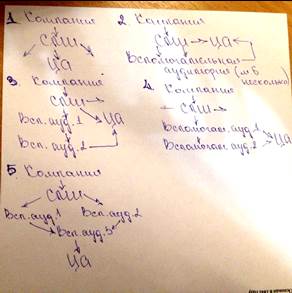 1 Компания
СМИ
ЦА
2 Компания
СМИ → ЦА
Вспомогательная
аудитория (м б
несколько)
3. Компания
СМИ
Всп. ауд. 1
ЦА
Всп. ауд. 2
4. Компания
СМИ
Вспомогат. ауд. 1
ЦА
Вспомогат. ауд. 2
5 Компания
СМИ
Всп. ауд. 1
Всп. ауд. 2
Всп. ауд. 3
ЦА